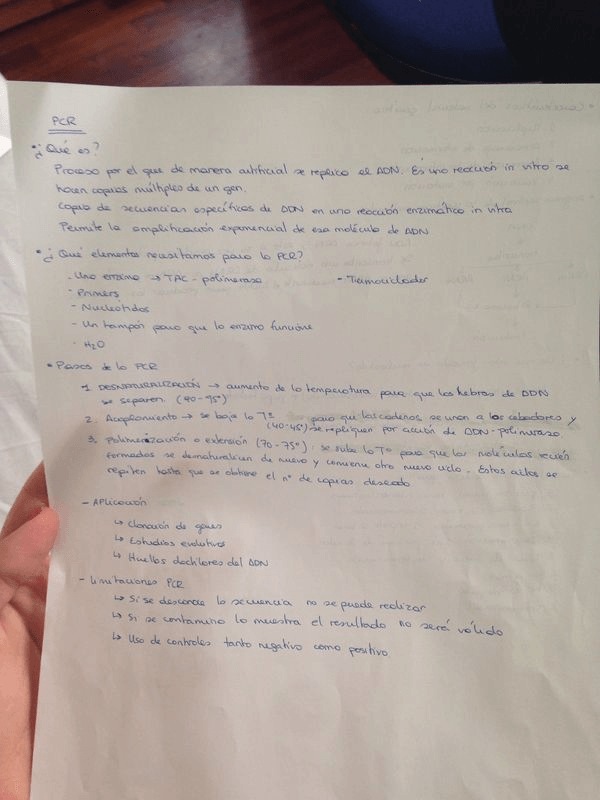 PCR
• ¿Qué es?
Proceso por el que de manera artificial se replica el ADN. Es una reacción in vitro se
hacen copias múltiples de un gen.
Copia de secuencias específicas de ADN en una reacción enzimática in vitra
Permite la amplificación exponencial de esa molécula de ADN
• ¿Qué elementos necesitamos para la PCR?
- Una enzima → TAC - polimerasa - Termociclador
- Primers
- Nucleótidos
- Un tampón para que la enzima funcione
- H2O
• Pasos de la PCR
1. DESNATURALIZACIÓN → aumento de la temperatura para que las hebras de ADN
se separen. (90-95º)
2. Acoplamiento → se baja la Tª (40-45º) para que las cadenas se unan a los cebadores y
se repliquen por acción de ADN-polimerasa.
3. Polimerización o extensión (70-75º): se sube la Tª para que las moléculas recién
formadas se desnaturalicen de nuevo y comience otro nuevo ciclo. Estos ciclos se
repiten hasta que se obtiene el nº de copias deseado
- Aplicación
↳ Clonación de genes
↳ Estudios evolutivos
↳ Huellas dactilares del ADN
- Limitaciones PCR
↳ Si se desconoce la secuencia no se puede realizar
↳ Si se contamina la muestra el resultado no será válido
↳ Uso de controles tanto negativo como positivo.